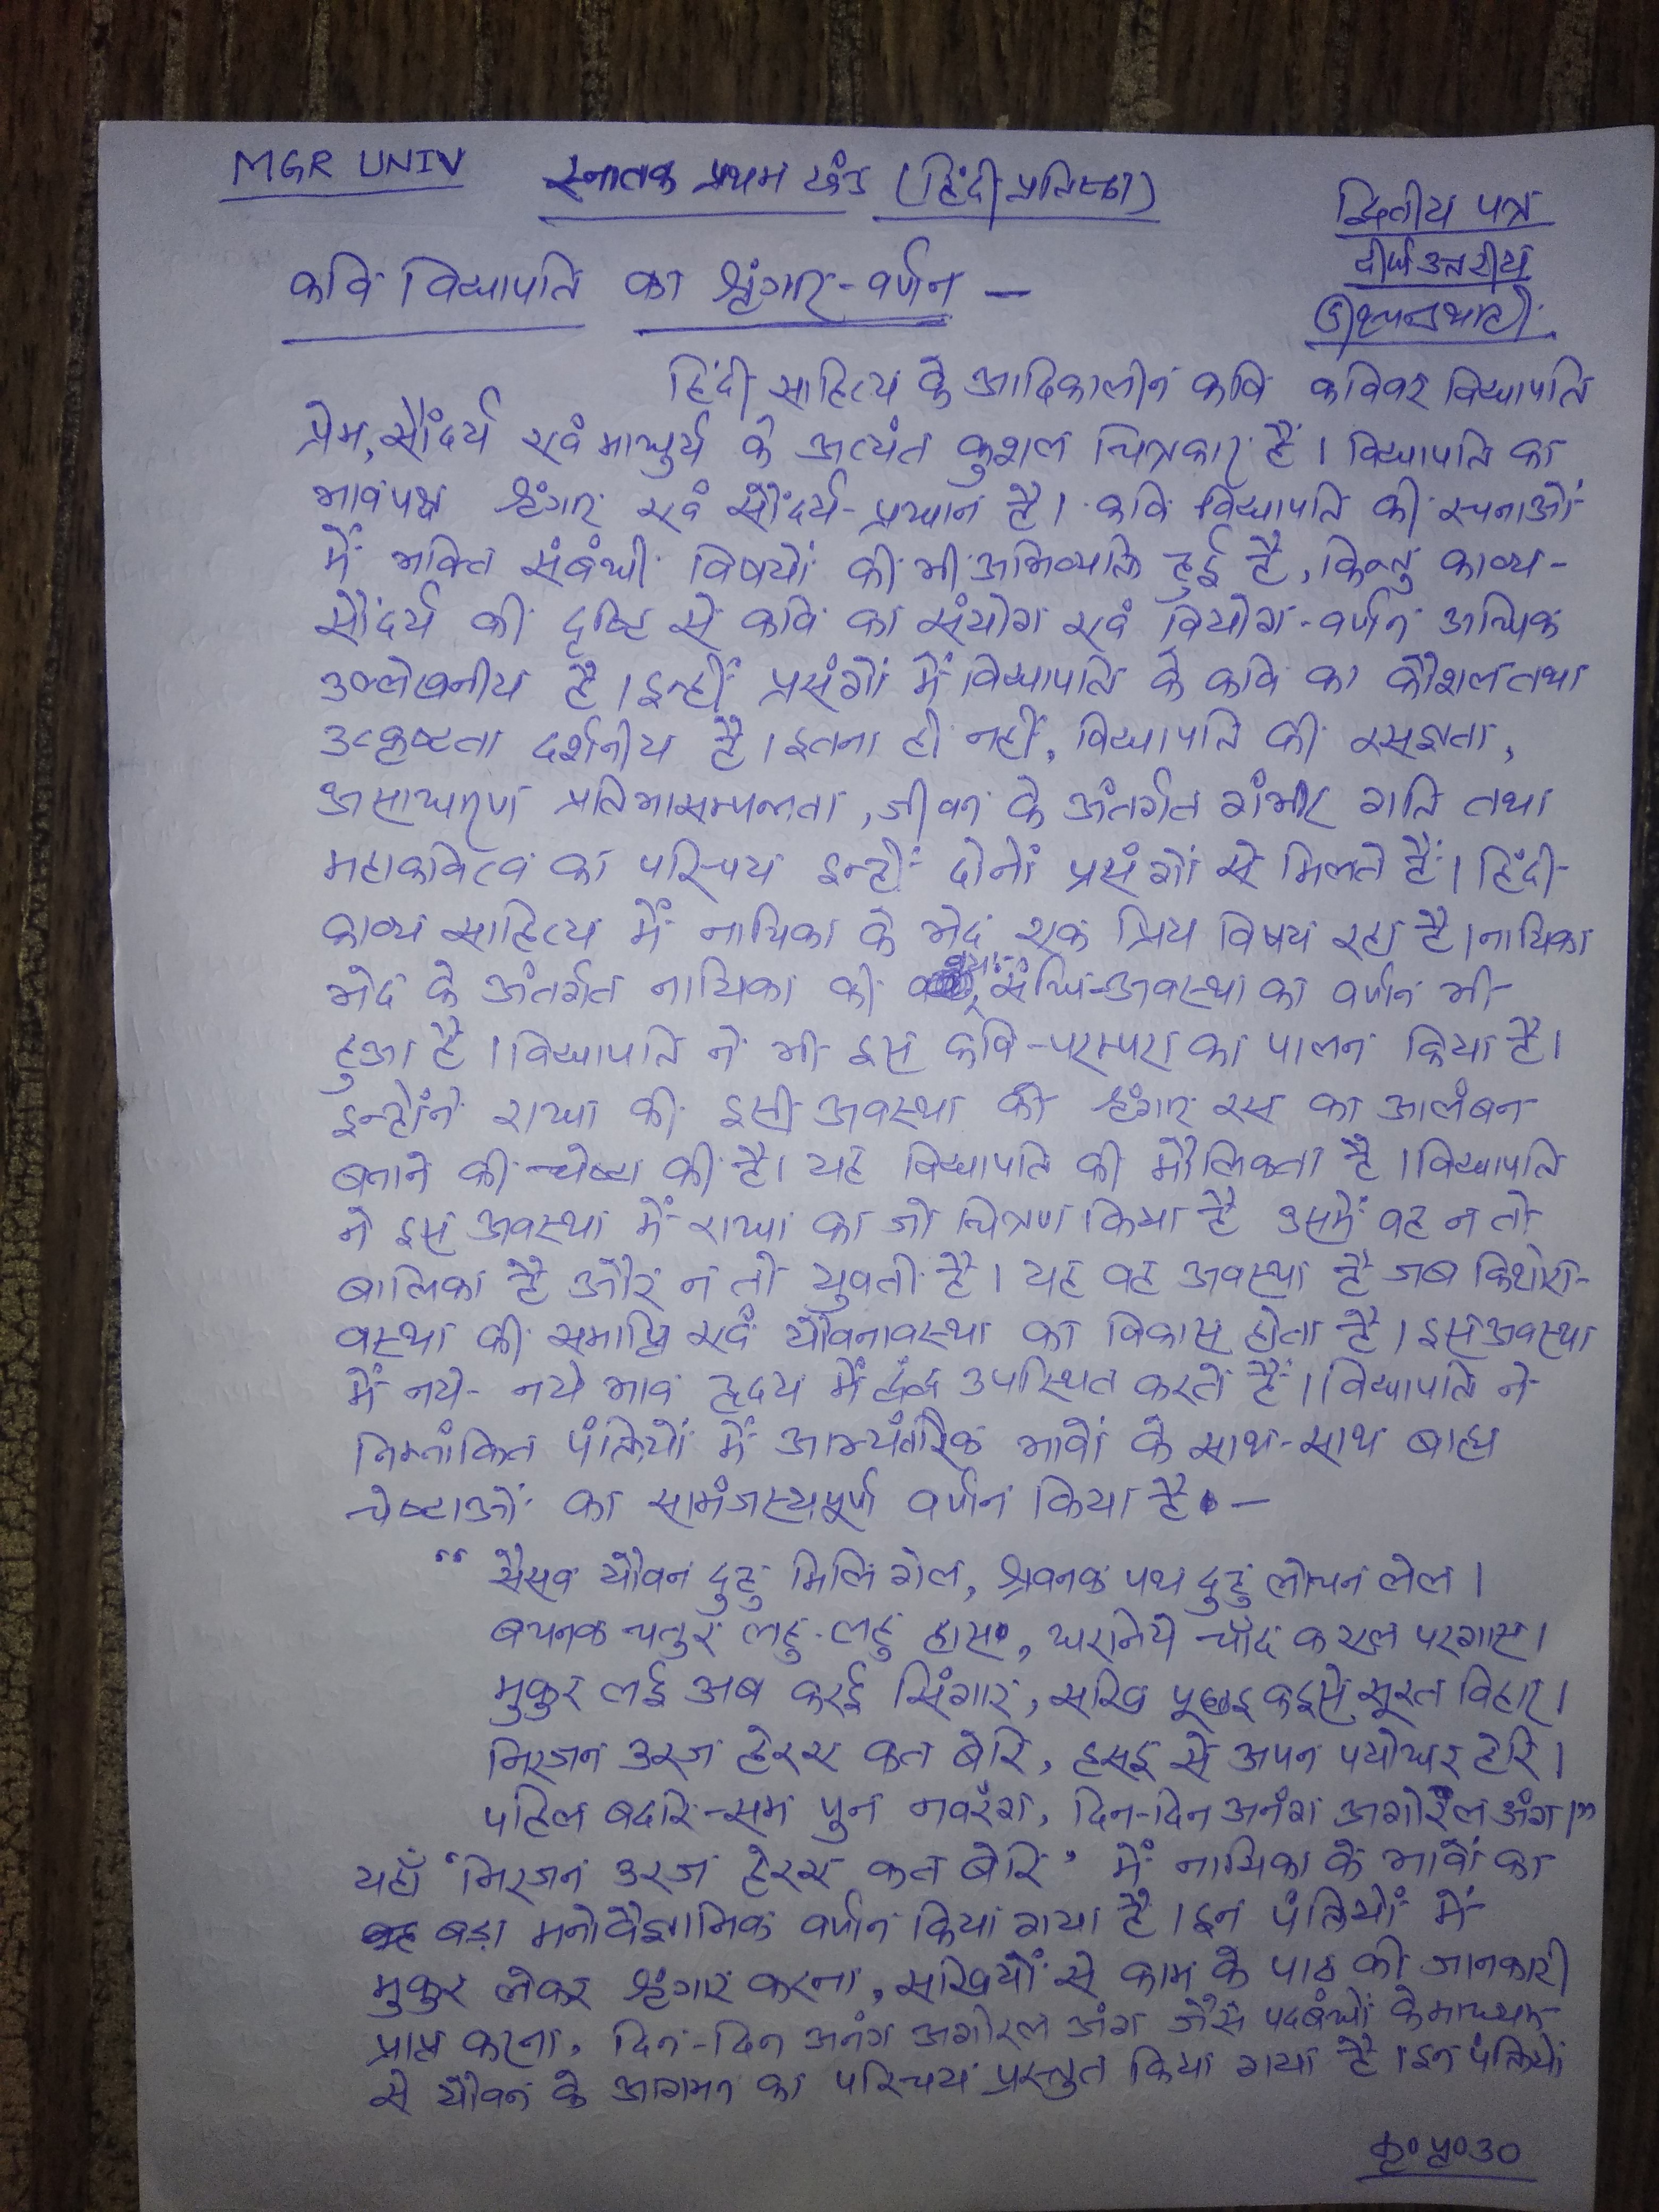 MGR UNIV
स्नातक प्रथम खंड (हिंदी प्रतिष्ठा)
द्वितीय पत्र
दीर्घ उत्तरीय
कवि विद्यापति का श्रृंगार-वर्णन —
हिंदी साहित्य के आदिकालीन कवि कविवर विद्यापति
प्रेम, सौंदर्य एवं माधुर्य के अत्यंत कुशल चित्रकार हैं। विद्यापति का
भावपक्ष श्रृंगार एवं सौंदर्य-प्रधान है। कवि विद्यापति की रचनाओं
में भक्ति संबंधी विषयों की भी अभिव्यक्ति हुई है, किन्तु काव्य-
सौंदर्य की दृष्टि से कवि का संयोग एवं वियोग-वर्णन अधिक
उल्लेखनीय है। इन्हीं प्रसंगों में विद्यापति के कवि का कौशल तथा
उत्कृष्टता दर्शनीय है। इतना ही नहीं, विद्यापति की रसज्ञता,
असाधारण प्रतिभासम्पन्नता, जीवन के अंतर्गत गंभीर गति तथा
महाकवित्व का परिचय इन्हीं दोनों प्रसंगों से मिलते हैं। हिंदी
काव्य साहित्य में नायिका के भेद एक प्रिय विषय रहा है। नायिका
भेद के अंतर्गत नायिका की वयः संधि-अवस्था का वर्णन भी
हुआ है। विद्यापति ने भी इस कवि-परम्परा का पालन किया है।
इन्होंने राधा की इसी अवस्था को श्रृंगार रस का आलंबन
बनाने की चेष्टा की है। यह विद्यापति की मौलिकता है। विद्यापति
ने इस अवस्था में राधा का जो चित्रण किया है उसमें वह न तो
बालिका है और न तो युवती है। यह वह अवस्था है जब किशोरा-
वस्था की समाप्ति एवं यौवनावस्था का विकास होता है। इस अवस्था
में नये-नये भाव हृदय में द्वंद्व उपस्थित करते हैं। विद्यापति ने
निम्नांकित पंक्तियों में आभ्यंतरिक भावों के साथ-साथ बाह्य
चेष्टाओं का सामंजस्यपूर्ण वर्णन किया है। —
“सैसव यौवन दुहु मिलि गेल, श्रवनक पथ दुहु लोचन लेल।
बचनक चतुर लहु-लहु हास, धरनिये चाँद कएल परगास।
मुकुर लई अब करई सिंगार, सखि पूछइ कइसे सूरत विहार।
निरजन उरज हेरए कत बेरि, हसइ से अपन पयोधर हेरि।
पहिल बदरि-सम पुन नवरंग, दिन-दिन अनंग अगोरल अंग।”
यहाँ ‘निरजन उरज हेरए कत बेरि’ में नायिका के भावों का
बड़ा मनोवैज्ञानिक वर्णन किया गया है। इन पंक्तियों में
मुकुर लेकर श्रृंगार करना, सखियों से काम के पाठ की जानकारी
प्राप्त करना, दिन-दिन अनंग अगोरल अंग जैसे पदबंधों के माध्यम
से यौवन के आगमन का परिचय प्रस्तुत किया गया है। इन पंक्तियों
कृ०पृ०उ०